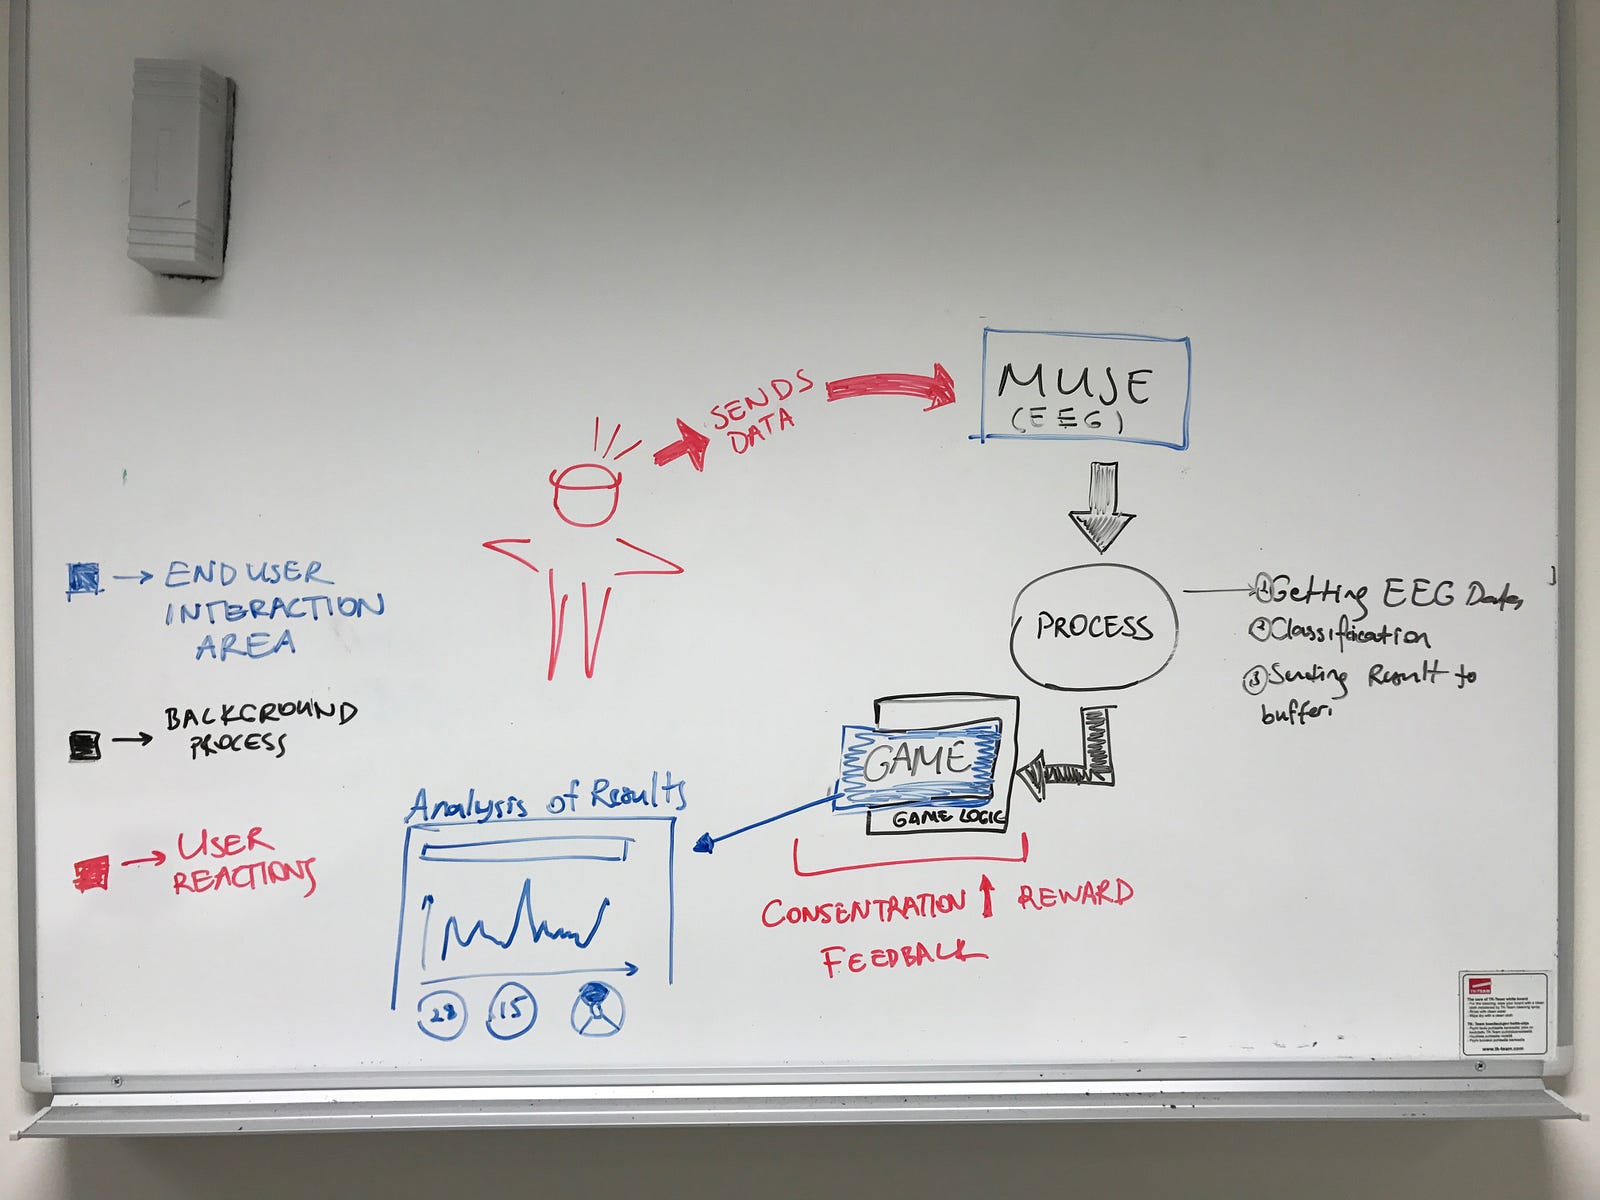 SENDS
DATA
MUSE
(EEG)
PROCESS
① Getting EEG Data,
② Classification
③ Sending Result to
buffer.
END USER
INTERACTION
AREA
BACKGROUND
PROCESS
USER
REACTIONS
GAME
GAME LOGIC
CONSENTRATION REWARD
FEEDBACK
Analysis of Results
28 15
TK-TEAM
www.tk-team.com